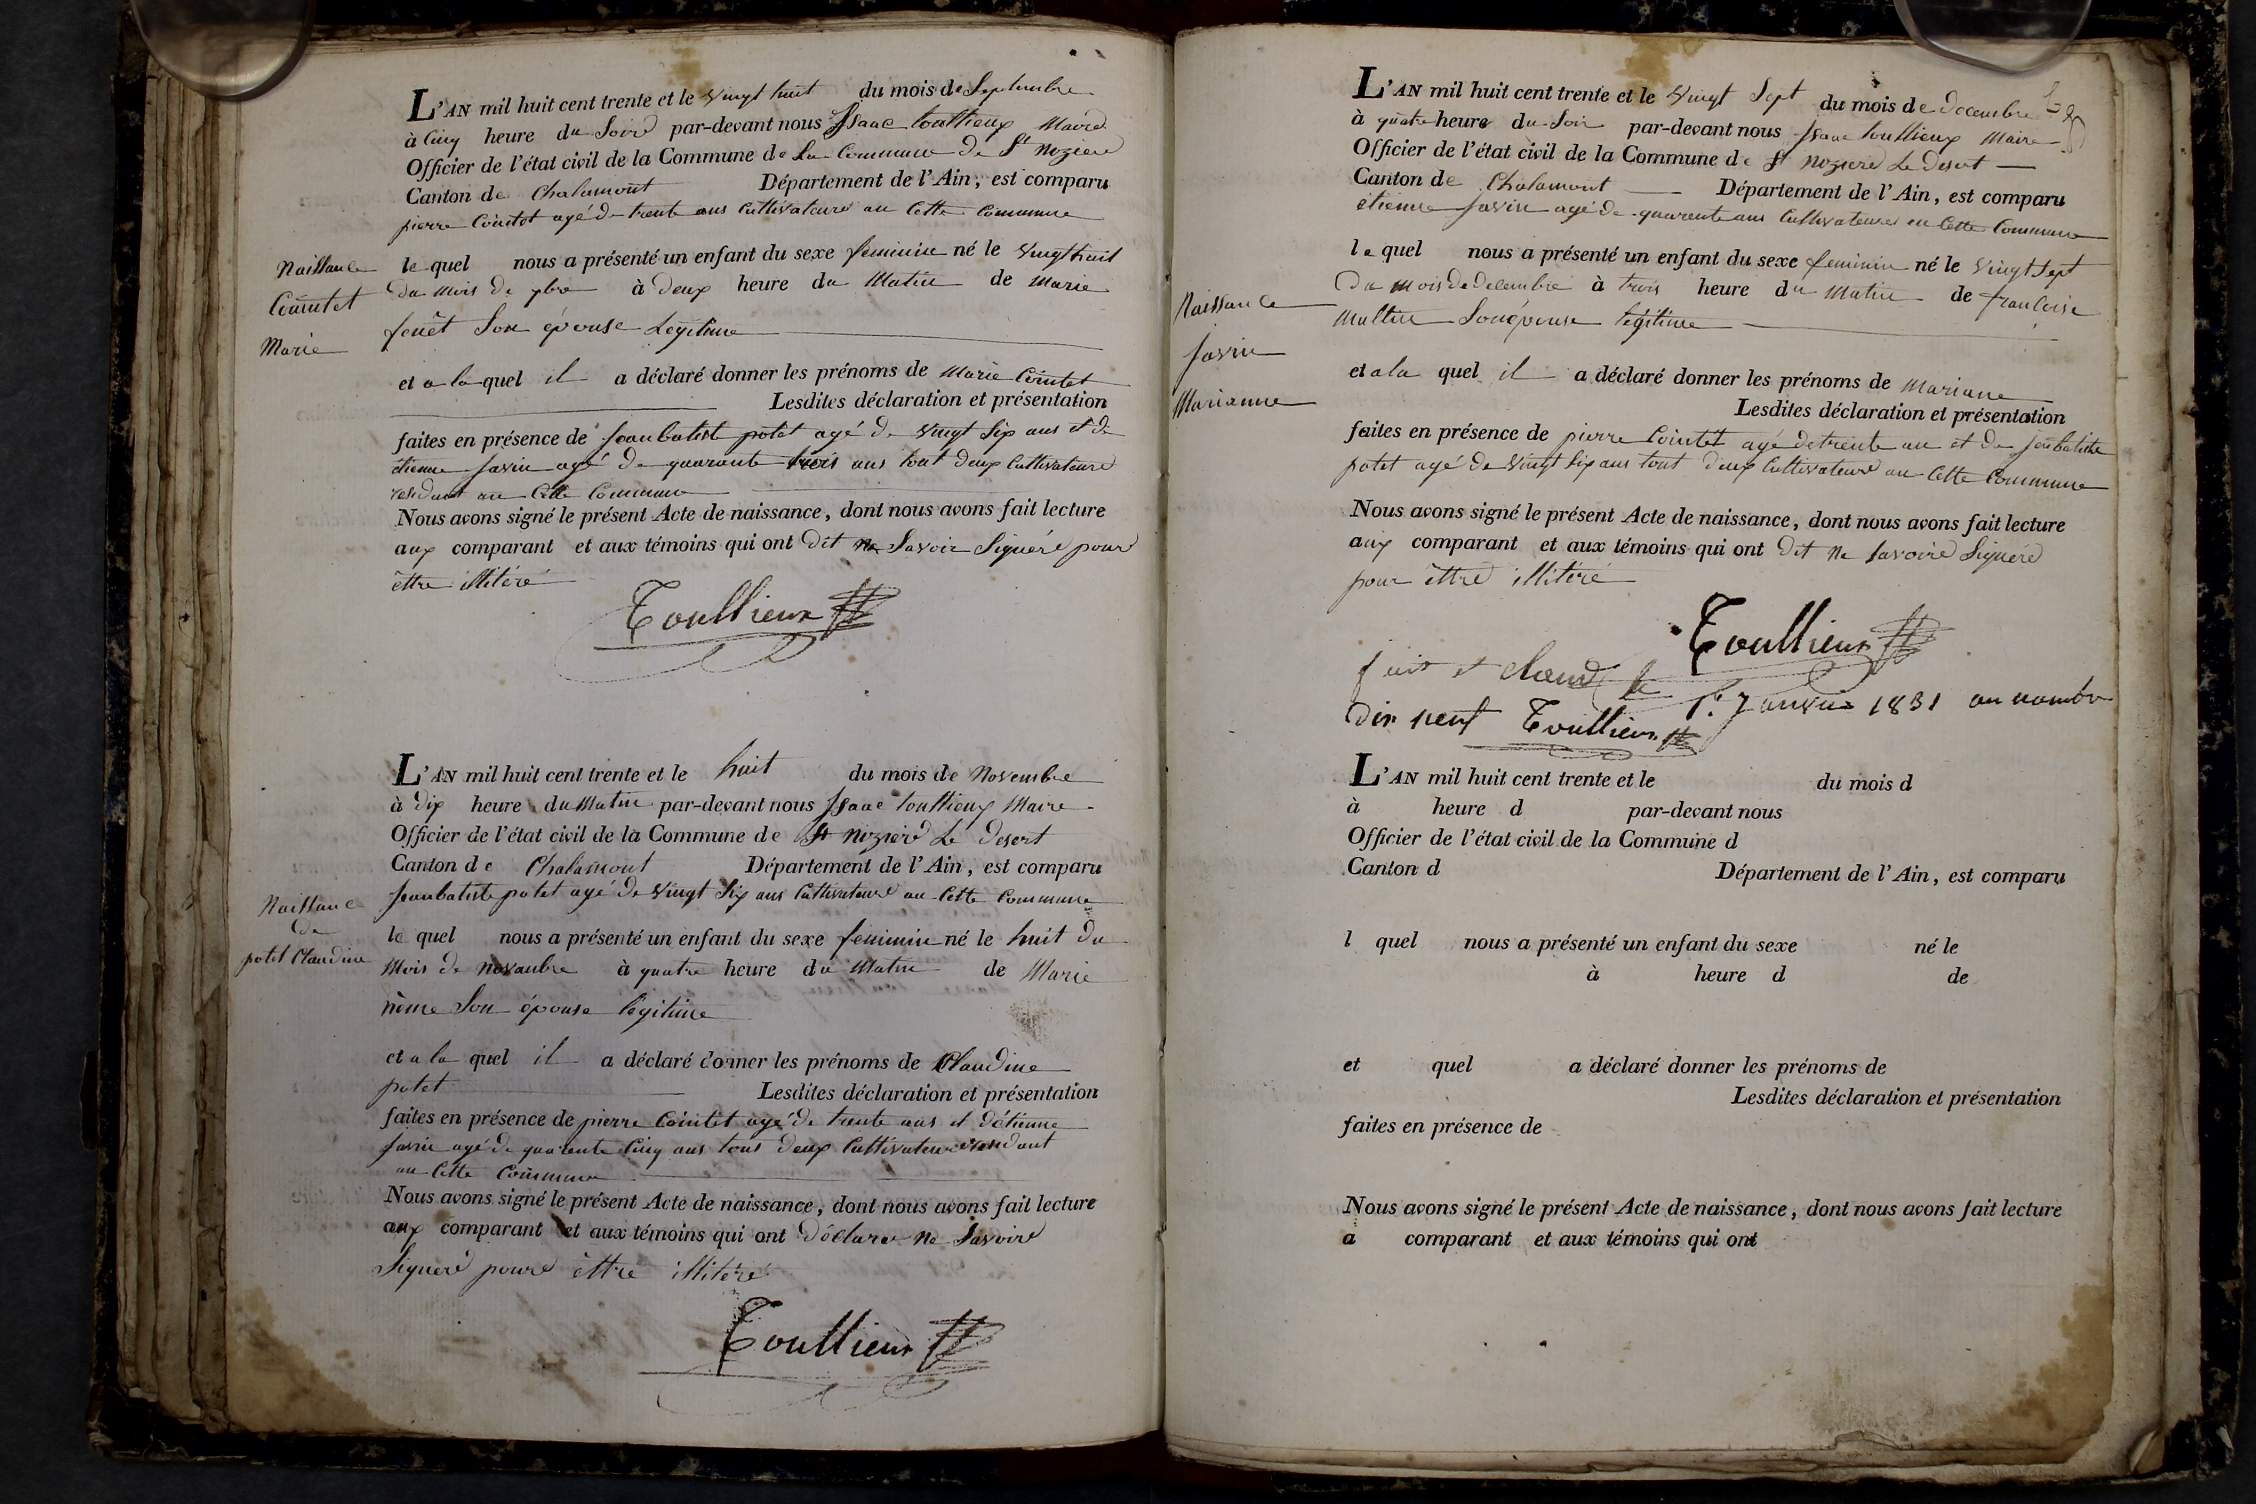 L'AN mil huit cent trente et le vingt huit du mois de Septembre
à Cinq heure du Soire par-devant nous Isaac touttieux Maire
Officier de l'état civil de la Commune de La Commune de St Noziere
Canton de Chalamont Département de l'Ain, est comparu
pierre Cointet agé de trente ans Cultivateure au Cette Commune
Naissance
Cointet
Marie
le quel nous a présenté un enfant du sexe feminin né le vingt huit
du mois de 7bre à deux heure du Matin de Marie
Son épouse Legitime
et a la quel il a déclaré donner les prénoms de Marie Cointet
Lesdites déclaration et présentation
faites en présence de Jeanbatiste potet agé de vingt Six ans et de
étienne Javin agé de quarante trois ans tout deux Cultivateure
residant au Cette Commune
Nous avons signé le présent Acte de naissance, dont nous avons fait lecture
aux comparant et aux témoins qui ont Dit ne Savoir Signére pour
êttre illitéré
Toullieux
L'AN mil huit cent trente et le huit du mois de Novembre
à dix heure du Matin par-devant nous Isaac touttieux Maire
Officier de l'état civil de la Commune de St Noziere Le Desert
Canton de Chalamont Département de l'Ain, est comparu
Jeanbatiste potet agé de vingt Six ans Cultivateure au Cette Commune
Naissance
de
potet Claudine
le quel nous a présenté un enfant du sexe feminin né le huit du
Mois de Novanbre à quatre heure du Matin de Marie
Son épouse légitime
et a la quel il a déclaré donner les prénoms de Claudine
potet Lesdites déclaration et présentation
faites en présence de pierre Cointet agé de trente ans et d'étienne
Javin agé de quarente Cinq ans tous deux Cultivateure residant
au Cette Commune
Nous avons signé le présent Acte de naissance, dont nous avons fait lecture
aux comparant et aux témoins qui ont déclare ne Savoire
Signere poure êttre illitéré
Toullieux
L'AN mil huit cent trente et le vingt Sept du mois de decembre
à quatre heure du Soir par-devant nous Isaac touttieux Maire
Officier de l'état civil de la Commune de St Noziere Le Desert
Canton de Chalamont Département de l'Ain, est comparu
étienne Javin agé de quarente ans Cultivateure en Cette Commune
Naissance
Javin
Marianne
le quel nous a présenté un enfant du sexe feminin né le vingt Sept
Du Mois de decembre à trois heure du Matin de francoise
Son épouse legitime
et a la quel il a déclaré donner les prénoms de Mariane
Lesdites déclaration et présentation
faites en présence de pierre Cointet agé de trente an et de Jeanbatiste
potet agé de vingt Six ans tout deux Cultivateure au Cette Commune
Nous avons signé le présent Acte de naissance, dont nous avons fait lecture
aux comparant et aux témoins qui ont Dit ne Savoire Signére
pour êttre illitéré
Toullieux
1er Janvier 1831 au nombre
dix neuf Toullieux
L'AN mil huit cent trente et le du mois d
à heure d par-devant nous
Officier de l'état civil de la Commune d
Canton d Département de l'Ain, est comparu
l quel nous a présenté un enfant du sexe né le
à heure d de
et quel a déclaré donner les prénoms de
Lesdites déclaration et présentation
faites en présence de
Nous avons signé le présent Acte de naissance, dont nous avons fait lecture
a comparant et aux témoins qui ont